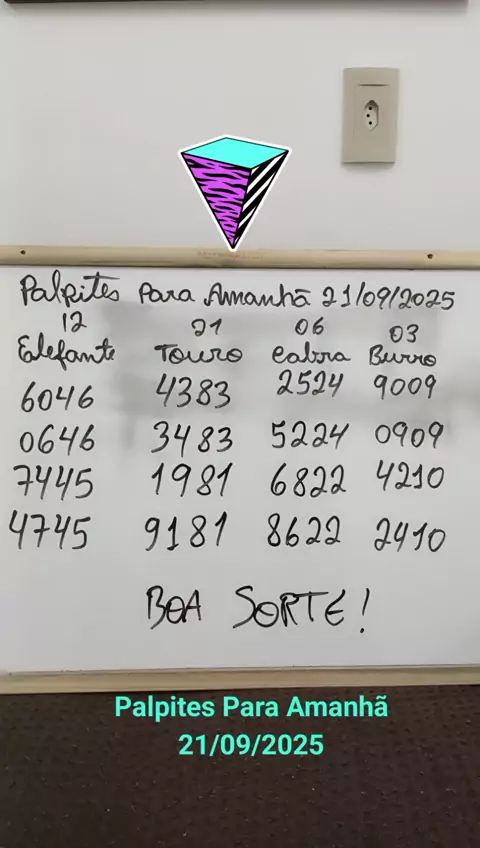 Palpites Para Amanhã 21/09/2025
12 21 06 03
Elefante Touro Cabra Burro
6046 4383 2524 9009
0646 3483 5224 0909
7445 1981 6822 4210
4745 9181 8622 2410
BOA SORTE!
Palpites Para Amanhã
21/09/2025